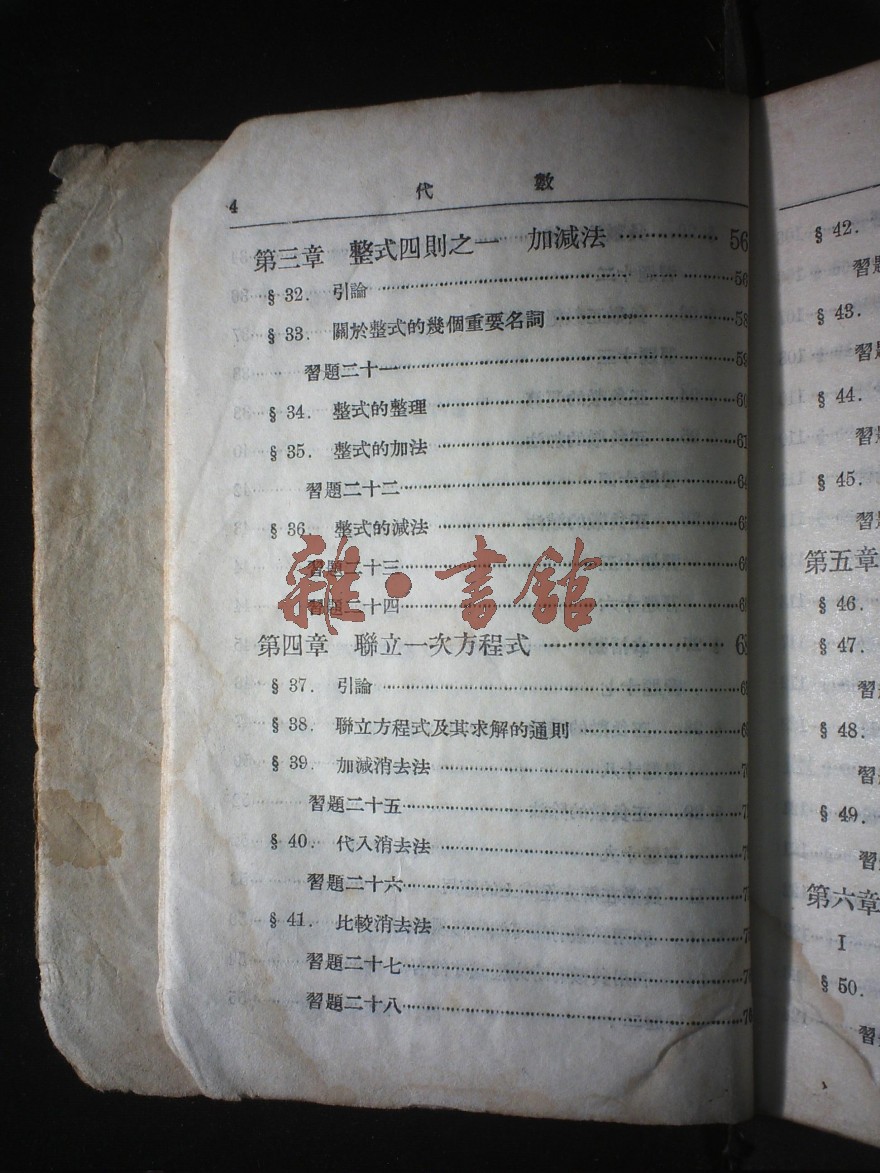 4 代 數
第三章 整式四則之一 加減法 56
§ 32. 引論 56
§ 33. 關於整式的幾個重要名詞 58
習題二十一 59
§ 34. 整式的整理 60
§ 35. 整式的加法 61
習題二十二 64
§ 36 整式的減法
習題二十三
習題二十四
雜·書館
第四章 聯立一次方程式
§ 37. 引論
§ 38. 聯立方程式及其求解的通則
§ 39. 加減消去法
習題二十五
§ 40. 代入消去法
習題二十六
§ 41. 比較消去法
習題二十七
習題二十八
§ 42.
§ 43.
§ 44.
§ 45.
第五章
§ 46.
§ 47.
§ 48.
§ 49.
第六章
I
§ 50.